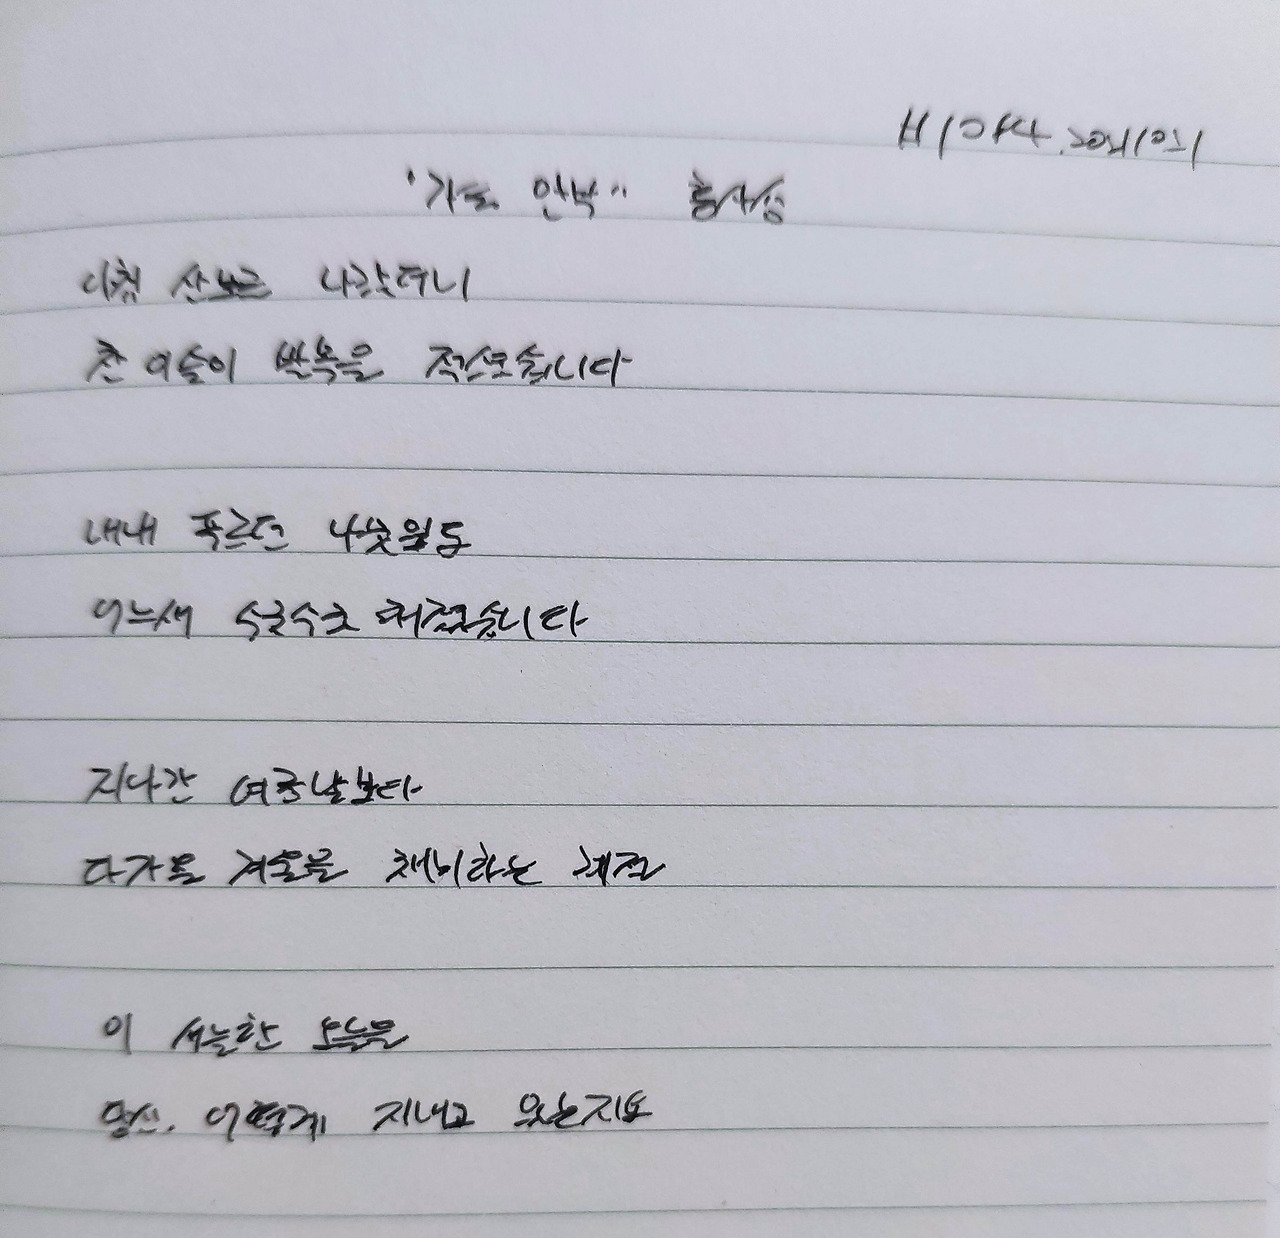 "가을 안부" 홍사성
아침 산보를 나갔더니
찬 이슬이 발목을 적셨습니다
내내 푸르던 나뭇잎도
어느새 수굿해졌습니다
지나간 여름날보다
다가올 겨울을 채비하는 계절
이 서늘한 오늘을
당신, 어떻게 지내고 있는지요